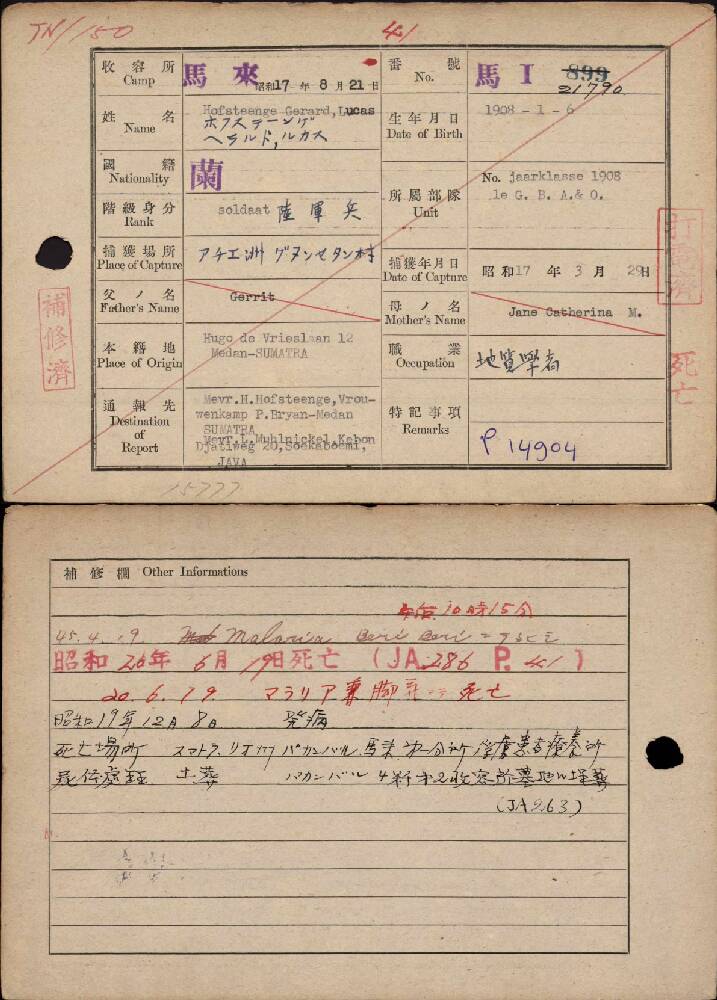 TN/150
41
收容所 Camp
馬來
昭和17年8月21日
番號 No.
馬 I 899
21790
姓名 Name
Hofsteenge Gerard, Lucas
ホフステーンゲ
ヘラルド,ルカス
生年月日 Date of Birth
1908 - 1 - 6
國籍 Nationality
蘭
所屬部隊 Unit
No. jaarklasse 1908
1e G. B. A.& O.
階級身分 Rank
soldaat 陸軍兵
捕獲場所 Place of Capture
アチエ洲
捕獲年月日 Date of Capture
昭和17年3月29日
父ノ名 Father's Name
Gerrit
母ノ名 Mother's Name
Jane Catherina M.
本籍地 Place of Origin
Hugo de Vrieslaan 12
Medan-SUMATRA
職業 Occupation
地質學者
通報先 Destination of Report
Mevr.H.Hofsteenge,Vrou-
wenkamp P.Bryan-Medan
SUMATRA
Mevr.L.Muhlnickel,Kebon
Djatiweg 20,Soekaboemi,
JAVA
特記事項 Remarks
P 14904
補修濟
打電濟
死亡
15777
補修欄 Other Informations
午后10時15分
45.4.19. Malaria Beri Beri
昭和20年6月19日死亡 (JA.286 P.41)
20.6.19. マラリア兼脚気 死亡
昭和19年12月8日 発病
死亡場所 スマトラ リオ州 パカンバル 馬来第一分所
死体處理 土葬 パカンバル
(JA263)